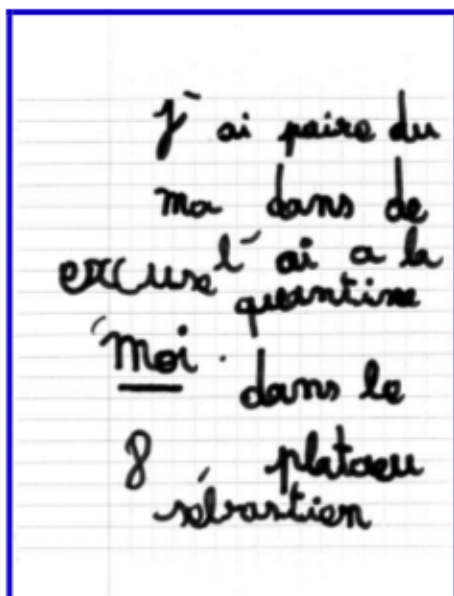 J'ai paire du
ma dans de
excuse l'ai a la
quantine
moi. dans le
8 plataeu
sébastien